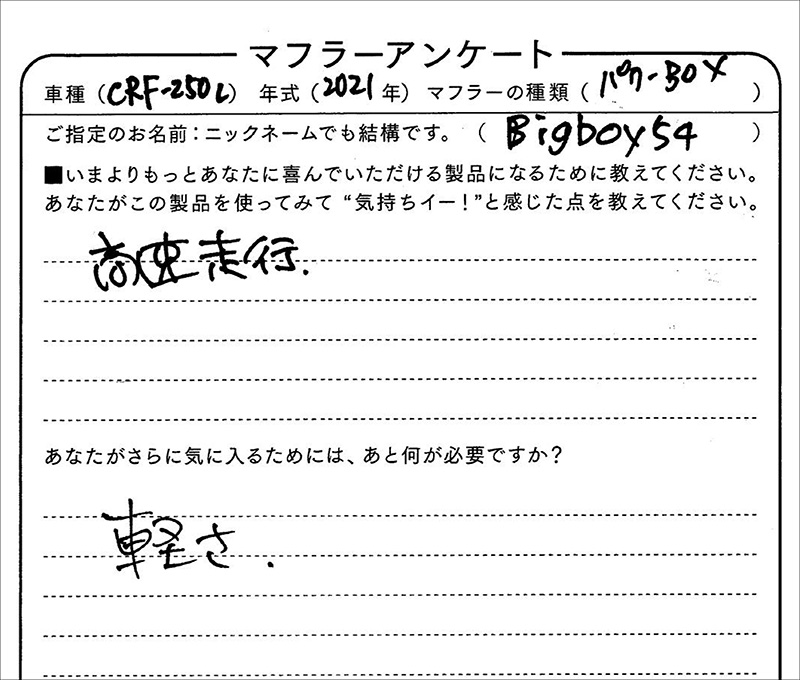 マフラーアンケート
車種（CRF-250L） 年式（2021年） マフラーの種類（パワーBOX）
ご指定のお名前：ニックネームでも結構です。（Bigboy54）
■いまよりもっとあなたに喜んでいただける製品になるために教えてください。
あなたがこの製品を使ってみて“気持ちイー！”と感じた点を教えてください。
高速走行.
あなたがさらに気に入るためには、あと何が必要ですか？
軽さ.